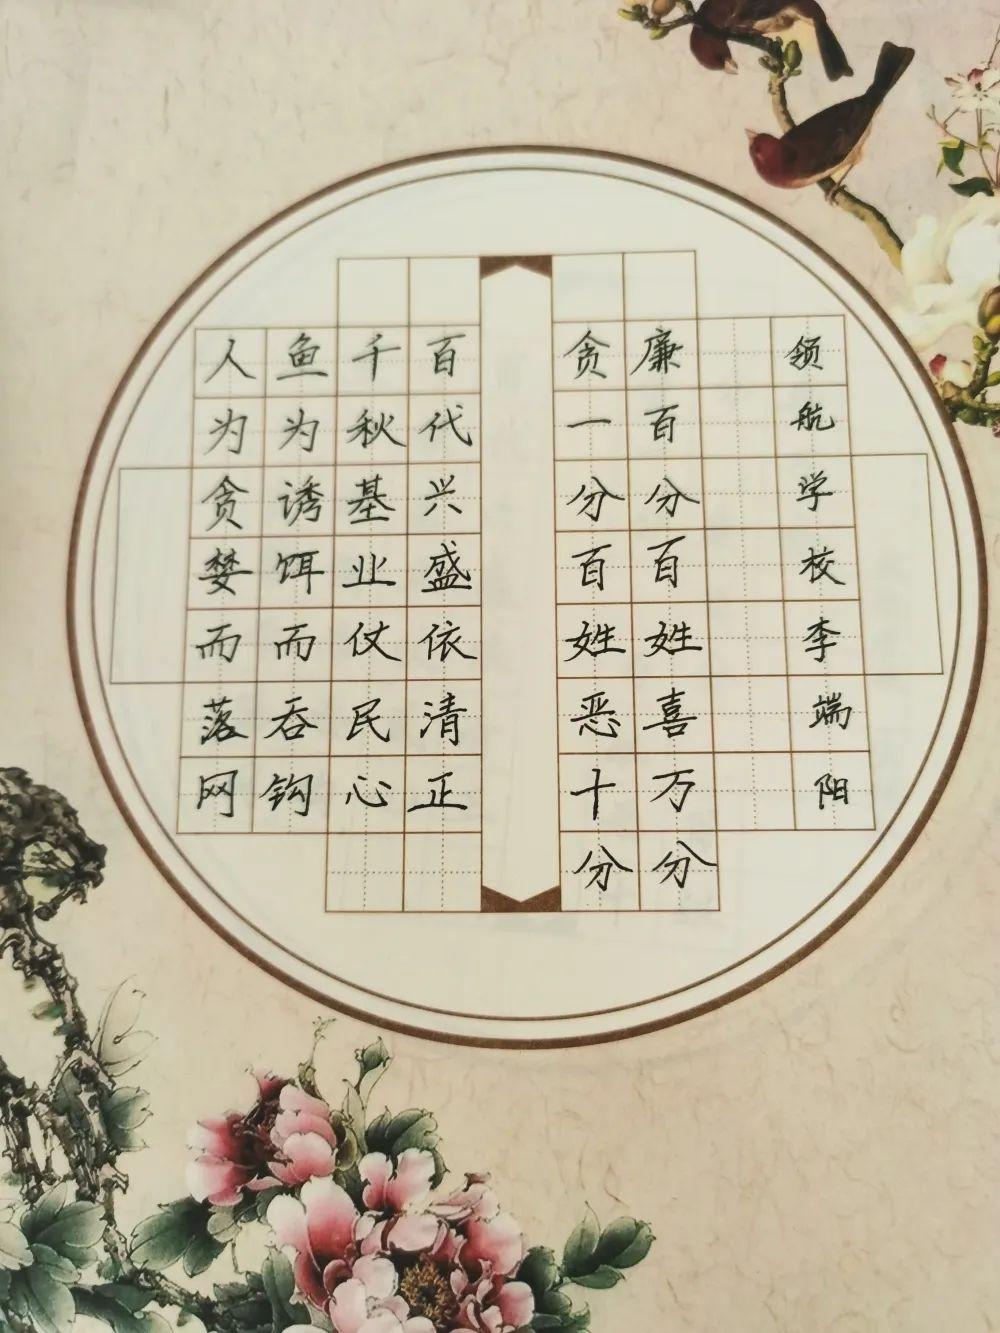 人为贪婪而落网
鱼为诱饵而吞钩
千秋基业仗民心
百代兴盛依清正
贪一分百姓恶十分
廉百分百姓喜万分
领航学校李端阳